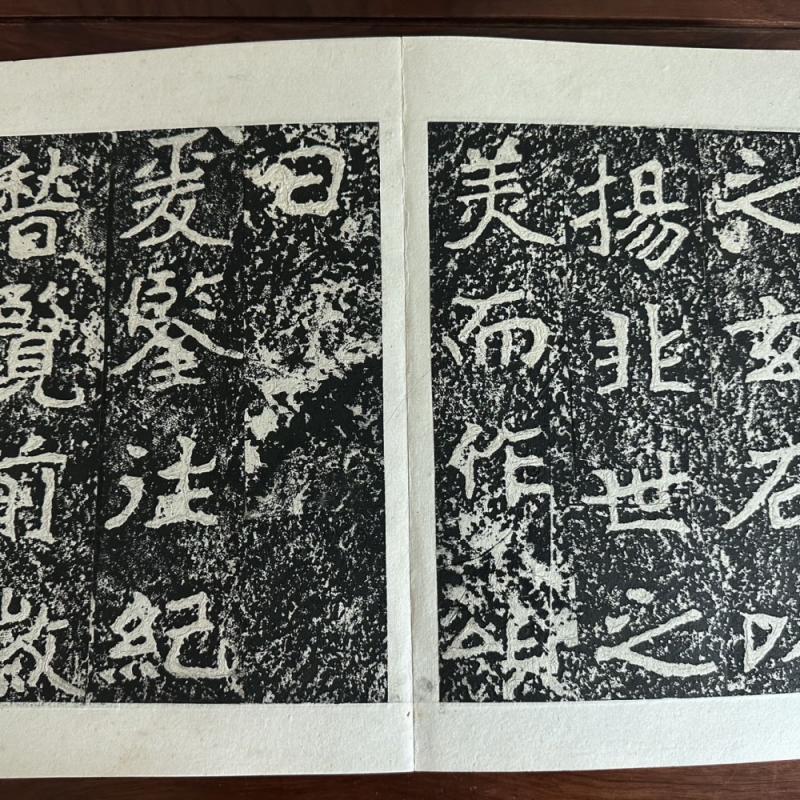 之刻石以
揚非世之
美而作頌
曰
爰鑒往紀
覽前